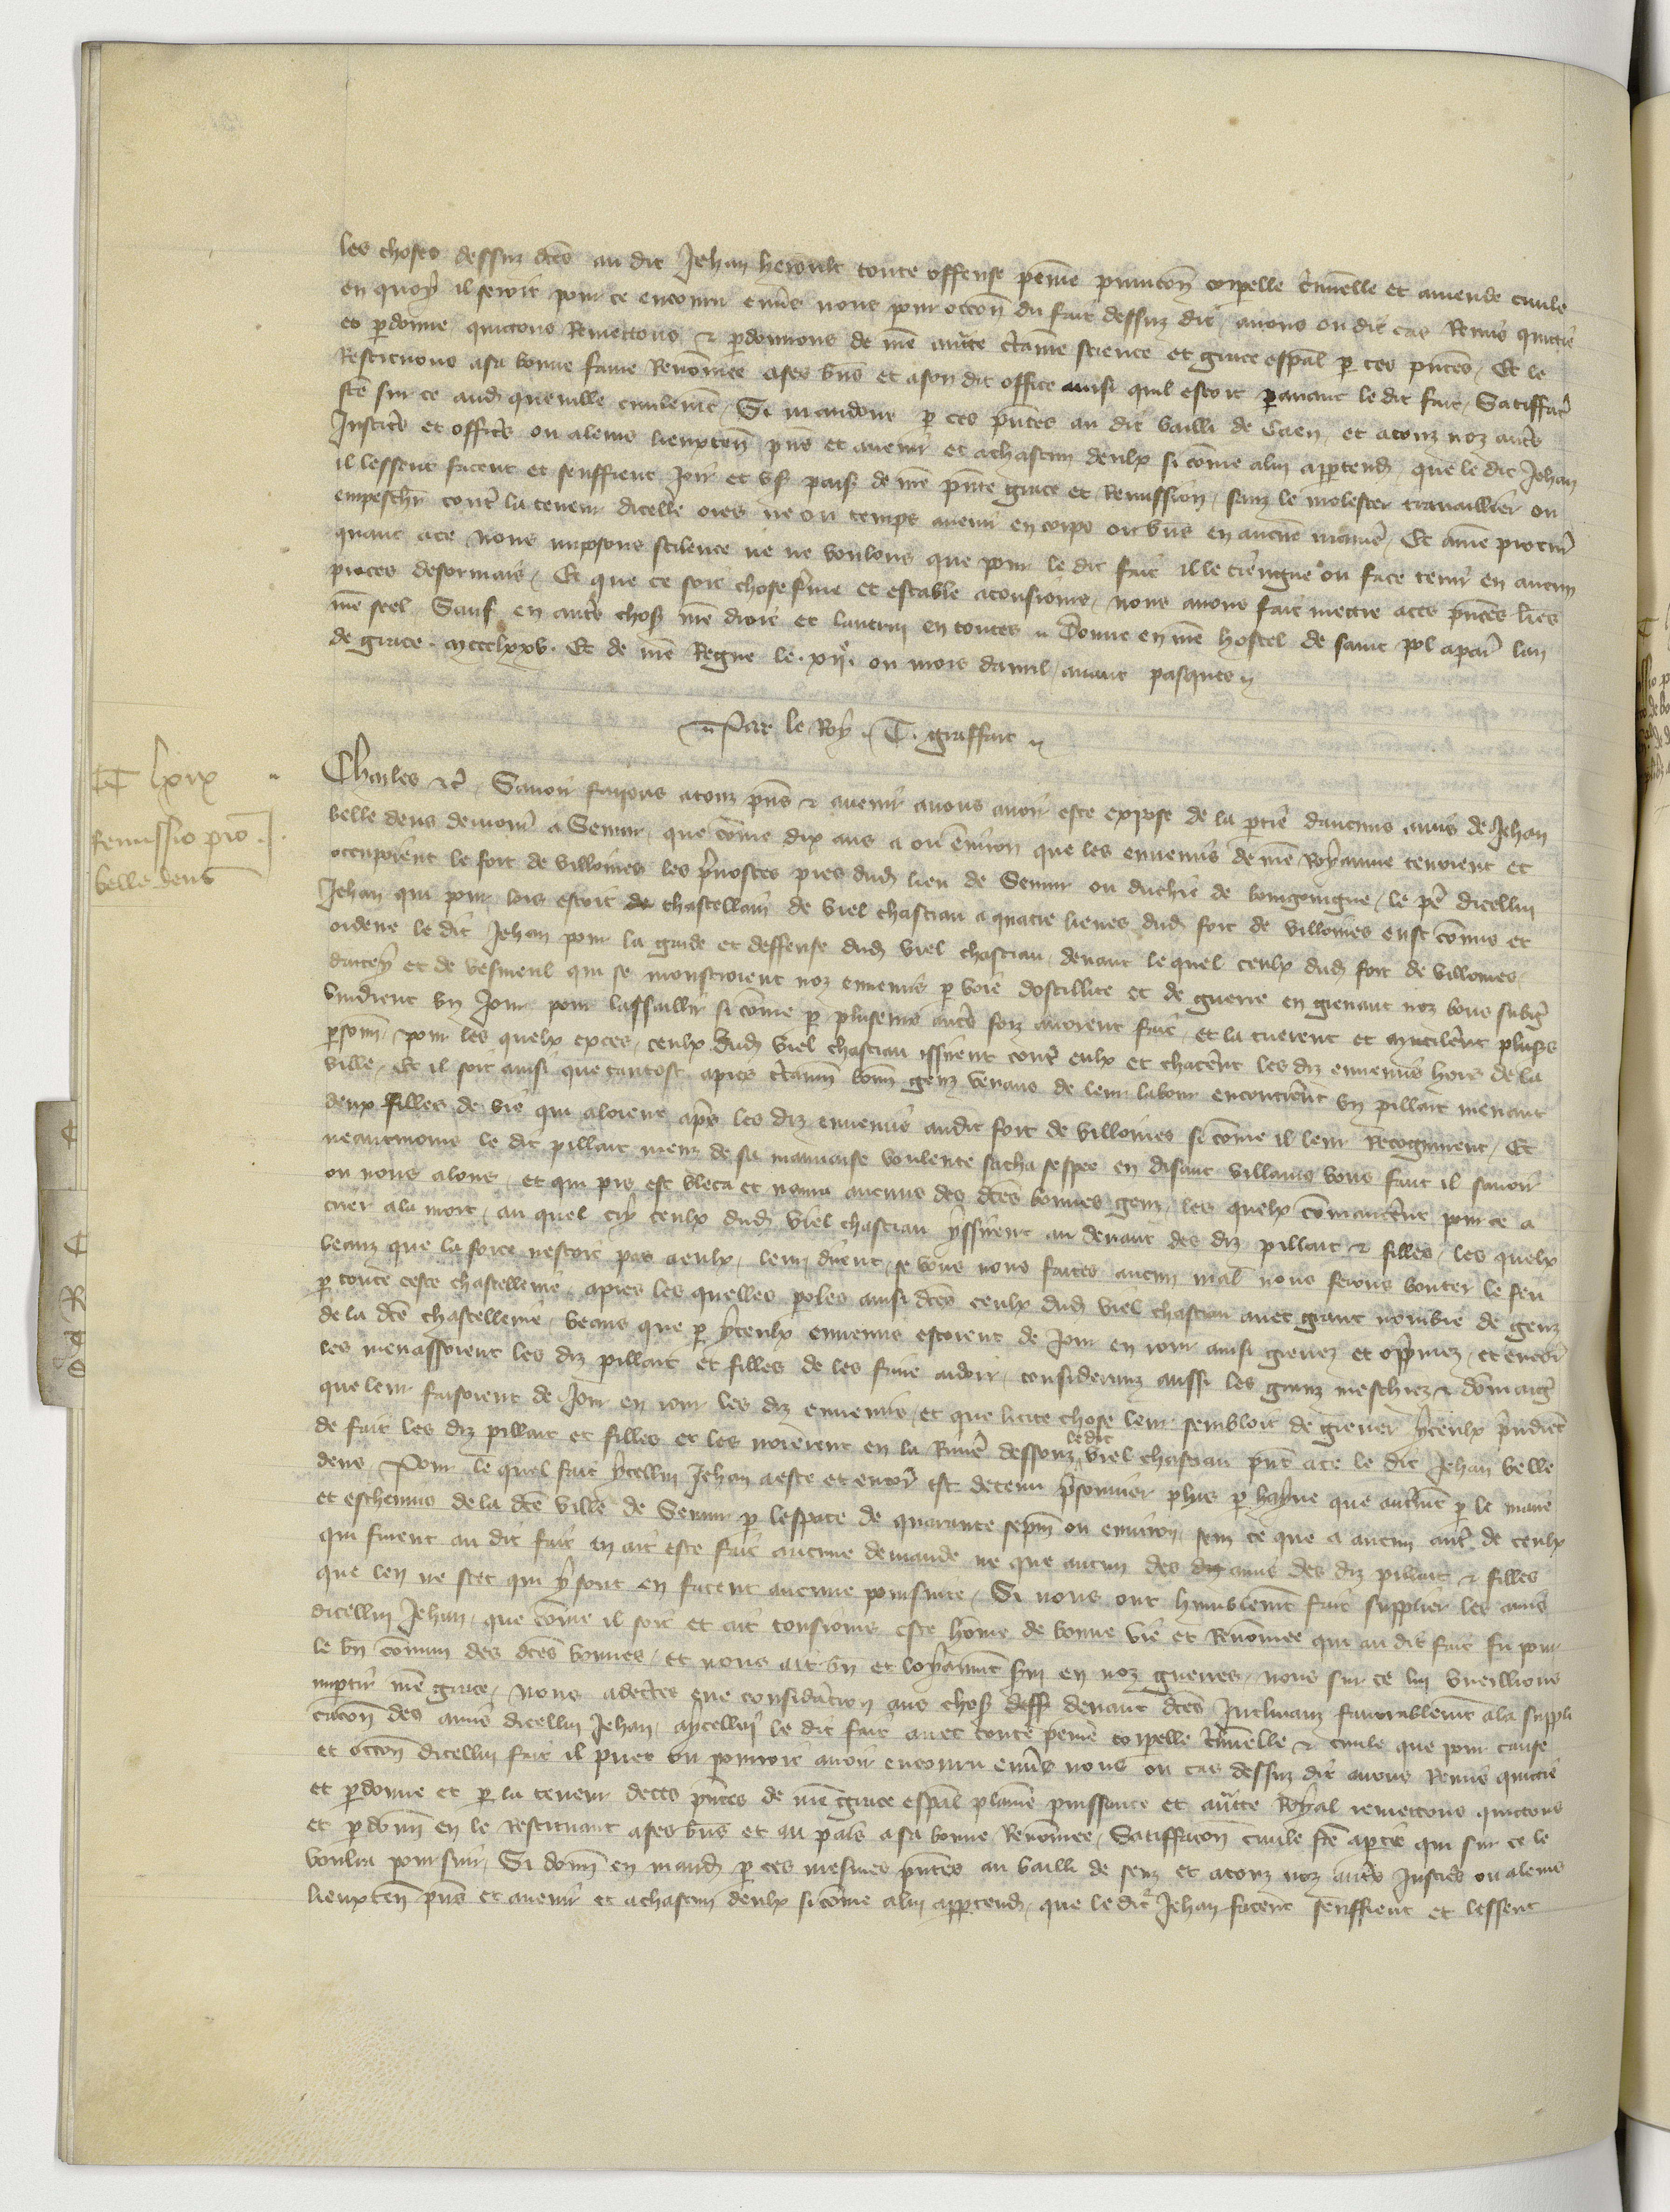 les choses dessuz dcēs au dit Jehan heroult toute offense peīne punicōn corpelle cīmnelle et amende civile
en quoy il seroit pour ce encouru envs nous pour occōn du fait dessuz dit avons ou dit cas Remis quictie
et pdonne quictons Remettons & pdonnons de nrē auctte ctaine science et grace espāl p ces pntēs Et le
Restituons a sa bonne fame Renōmee a ses bns et a son dit office ainsi quil estoit pavant le dit fait Satiffacō
fcē sur ce aud que ville civilemēt Si mandons p ces pntēs au dit bailli de Caen et a touz noz autrs
Justicrs et officrs ou a leurs lieuxten pns et avenir et a chascun deulx si cōme a lui apptendr que le dit Jehan
il lessent facent et seuffrent Joir et usr paisr de nrē pntē grace et Remission sanz le molester travaillier ou
empeschr contr la teneur dicelle ores ne ou temps avenir en corps ou bns en aucune manier Et a nrē procur
quant a ce nous imposons scilence ne ne voulons que pour le dit fait il le tiengne ou face tenir en aucun
proces desormais Et que ce soit chose ferme et estable a tousiours nous avons fait mettre a ces pntēs lrēs
nrē seel Sauf en autrs chosr nrē droit et lautrui en toutes Donne en nrē hostel de saint pol a paris lan
de grace mccclxxv Et de nrē Regne le xije ou mois davril avant pasques
Par le Roy T. graffart
Charles &c Savoir faisons a touz pns & avenir avons avoir este expose de la ptie daucuns amis de Jehan
belle dens demour a Semur que cōme dix ans a ou environ que les ennemis de nrē Royaume tenoient et
occupoient le fort de villoines les prevostes pres dud lieu de Semur ou duchie de bourgoingne le pe dicellui
Jehan qui pour lors estoit chastellain de viel chastiau a quatre lieues dud fort de villoines eust cōmis et
ordene le dit Jehan pour la garde et deffense dud viel chastiau devant le quel ceulx dud fort de villoines
darcey et de vesmeul qui se monstroient noz ennemis p voie dostillite et de guerre en grevant noz bons subigr
vindrent un Jour pour lassaillir si cōme p pluseurs autrs foiz avoient fait et la tuerent et mutilerent plusrs
psonn pour les quelx exces ceulx dud viel chastiau issirent contr eulx et chacerent les diz ennemis hors de la
ville Et il soit ainsi que tantost apres ctainn bonn genz venans de leur labour encontrerent un pillart menant
deux filles de vie qui aloient aps les diz ennemis audit fort de villoines si cōme il leur Recognurent Et
neantmoins le dit pillart meu de sa mauvaise voulente sacha sespee en disant villains vous faut il savoir
ou nous alons et qui pis est bleca et navra aucuns des dcēs bonnes genz les quelx cōmancerent pour ce a
crier a la mort au quel cry ceulx dud viel chastiau yssirent au devant des diz pillart & filles les quelx
veanz que la force nestoit pas a eulx leur dirent se vous nous faites aucun mal nous ferons bouter le feu
p toute ceste chastellenie apres les quelles poles ainsi dcēs ceulx dud viel chastiau avec grant nombre de genz
de la dcē chastellenie veans que p yceulx ennemis estoient de Jour en jour ainsi grevez et opprimez et encor
les menassoient les diz pillart et filles de les faire ardoir considerenz aussi les granz meschiez & dōmaigr
que leur faisoient de Jour en jour les diz ennemis et que licite chose leur sembloit de grever yceulx prindret
de fait les diz pillart et filles et les noierent en la Rivier dessouz ledit viel chastiau pnt a ce le dit Jehan belle
dens Pour le quel fait ycellui Jehan a este et encor est detenu prisonnier plus p hayne que autremēt p le maire
et eschevins de la dcē ville de Semur p lespace de quarante sepm ou environ senz ce que a aucun autr de ceulx
qui furent au dit fait en ait este fait aucune demande ne que aucun des amis des diz pillart & filles
que len ne scet qui y sont en facent aucune poursuite Si nous ont humblemēt fait supplier les amis
dicellui Jehan que cōme il soit et ait tousiours este hōme de bonne vie et Renōmee qui au dit fait fu pour
le bn cōmun des dcēs bonnes et nous ait bn et loyaumēt svi en noz guerres nous sur ce lui vueillions
imptir nrē grace Nous adectes eue considacion aus chosr devant dcēs Inclinanz favorablemēt a la suppli
cacōn des amis dicellui Jehan a ycellui le dit fait avec toute peīne corpelle cīmnelle & civile que pour cause
et occōn dicellui fait il puet ou pourroit avoir encouru envs nous ou cas dessuz dit avons Remis quictie
et pdonne et p la teneur de ces pntēs de nrē grace espāl plaine puissance et auctte Royal remettons quictons
et pdonn en le Restituant a ses bns et au pais a sa bonne Renōmee Satiffacōn civile fcē a ptie qui sur ce le
voulra poursuir Si donn en mandr p ces mesmes pntēs au bailli de senz et a touz noz autrs Justicrs ou a leurs
lieuxten pns et avenir et a chascun deulx si cōme a lui apptendr que le dit Jehan facent seuffrent et lessent
lxix
Remissio pro
belle dens